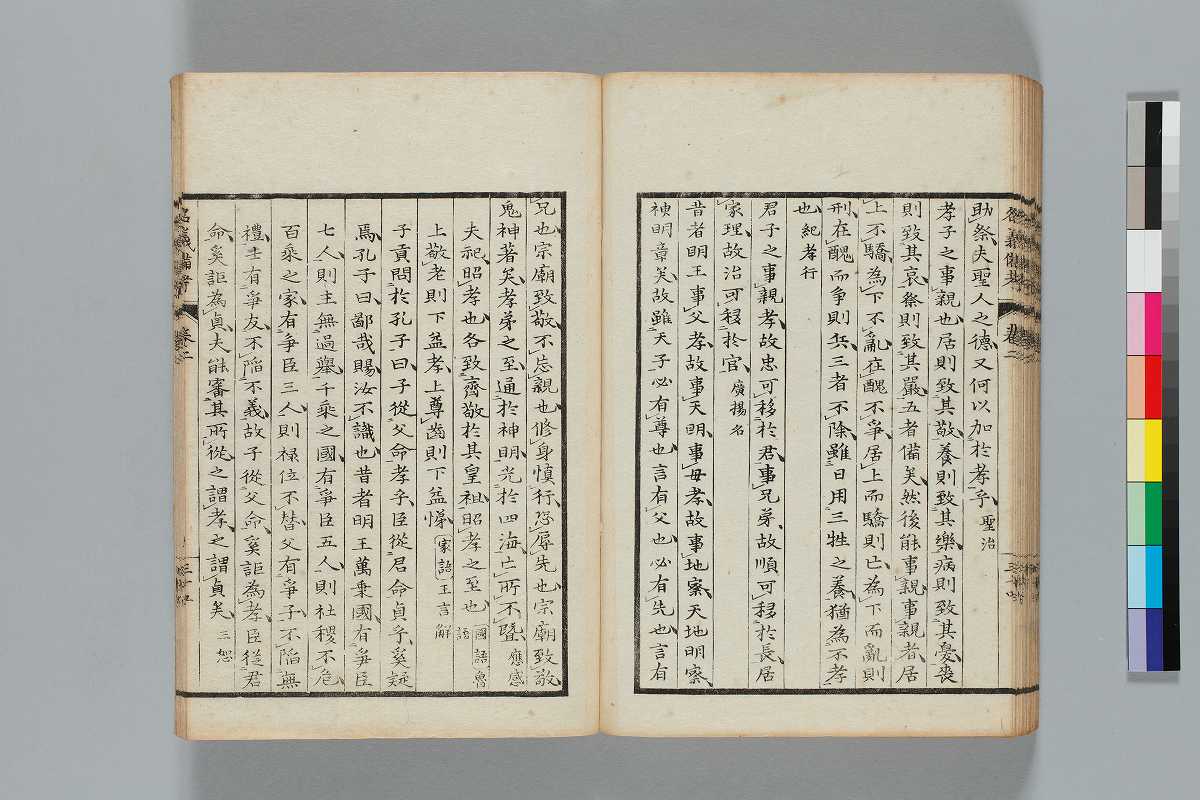 助祭夫聖人之德又何以加於孝乎 聖治
孝子之事親也居則致其敬養則致其樂病則致其憂喪
則致其哀祭則致其嚴五者備矣然後能事親事親者居
上不驕為下不亂在醜不爭居上而驕則亡為下而亂則
刑在醜而爭則兵三者不除雖日用三牲之養猶為不孝
也 紀孝行
君子之事親孝故忠可移於君事兄弟故順可移於長居
家理故治可移於官 廣揚名
昔者明王事父孝故事天明事母孝故事地察天地明察
神明章矣故雖天子必有尊也言有父也必有先也言有
兄也宗廟致敬不忘親也修身慎行恐辱先也宗廟致敬
鬼神著矣孝弟之至通於神明光於四海亡所不曁 應感
夫祀昭孝也各致齊敬於其皇祖昭孝之至也 國語魯語
上敬老則下益孝上尊齒則下益悌 家語王言解
子貢問於孔子曰子從父命孝乎臣從君命貞乎奚疑
焉孔子曰鄙哉賜汝不識也昔者明王萬乗國有爭臣
七人則主無過舉千乗之國有爭臣五人則社稷不危
百乗之家有爭臣三人則禄位不替父有爭子不陷無
禮士有爭友不陷不義故子從父命奚詎為孝臣從君
命奚詎為貞夫能審其所從之謂孝之謂貞矣 三恕
名義備考 卷二